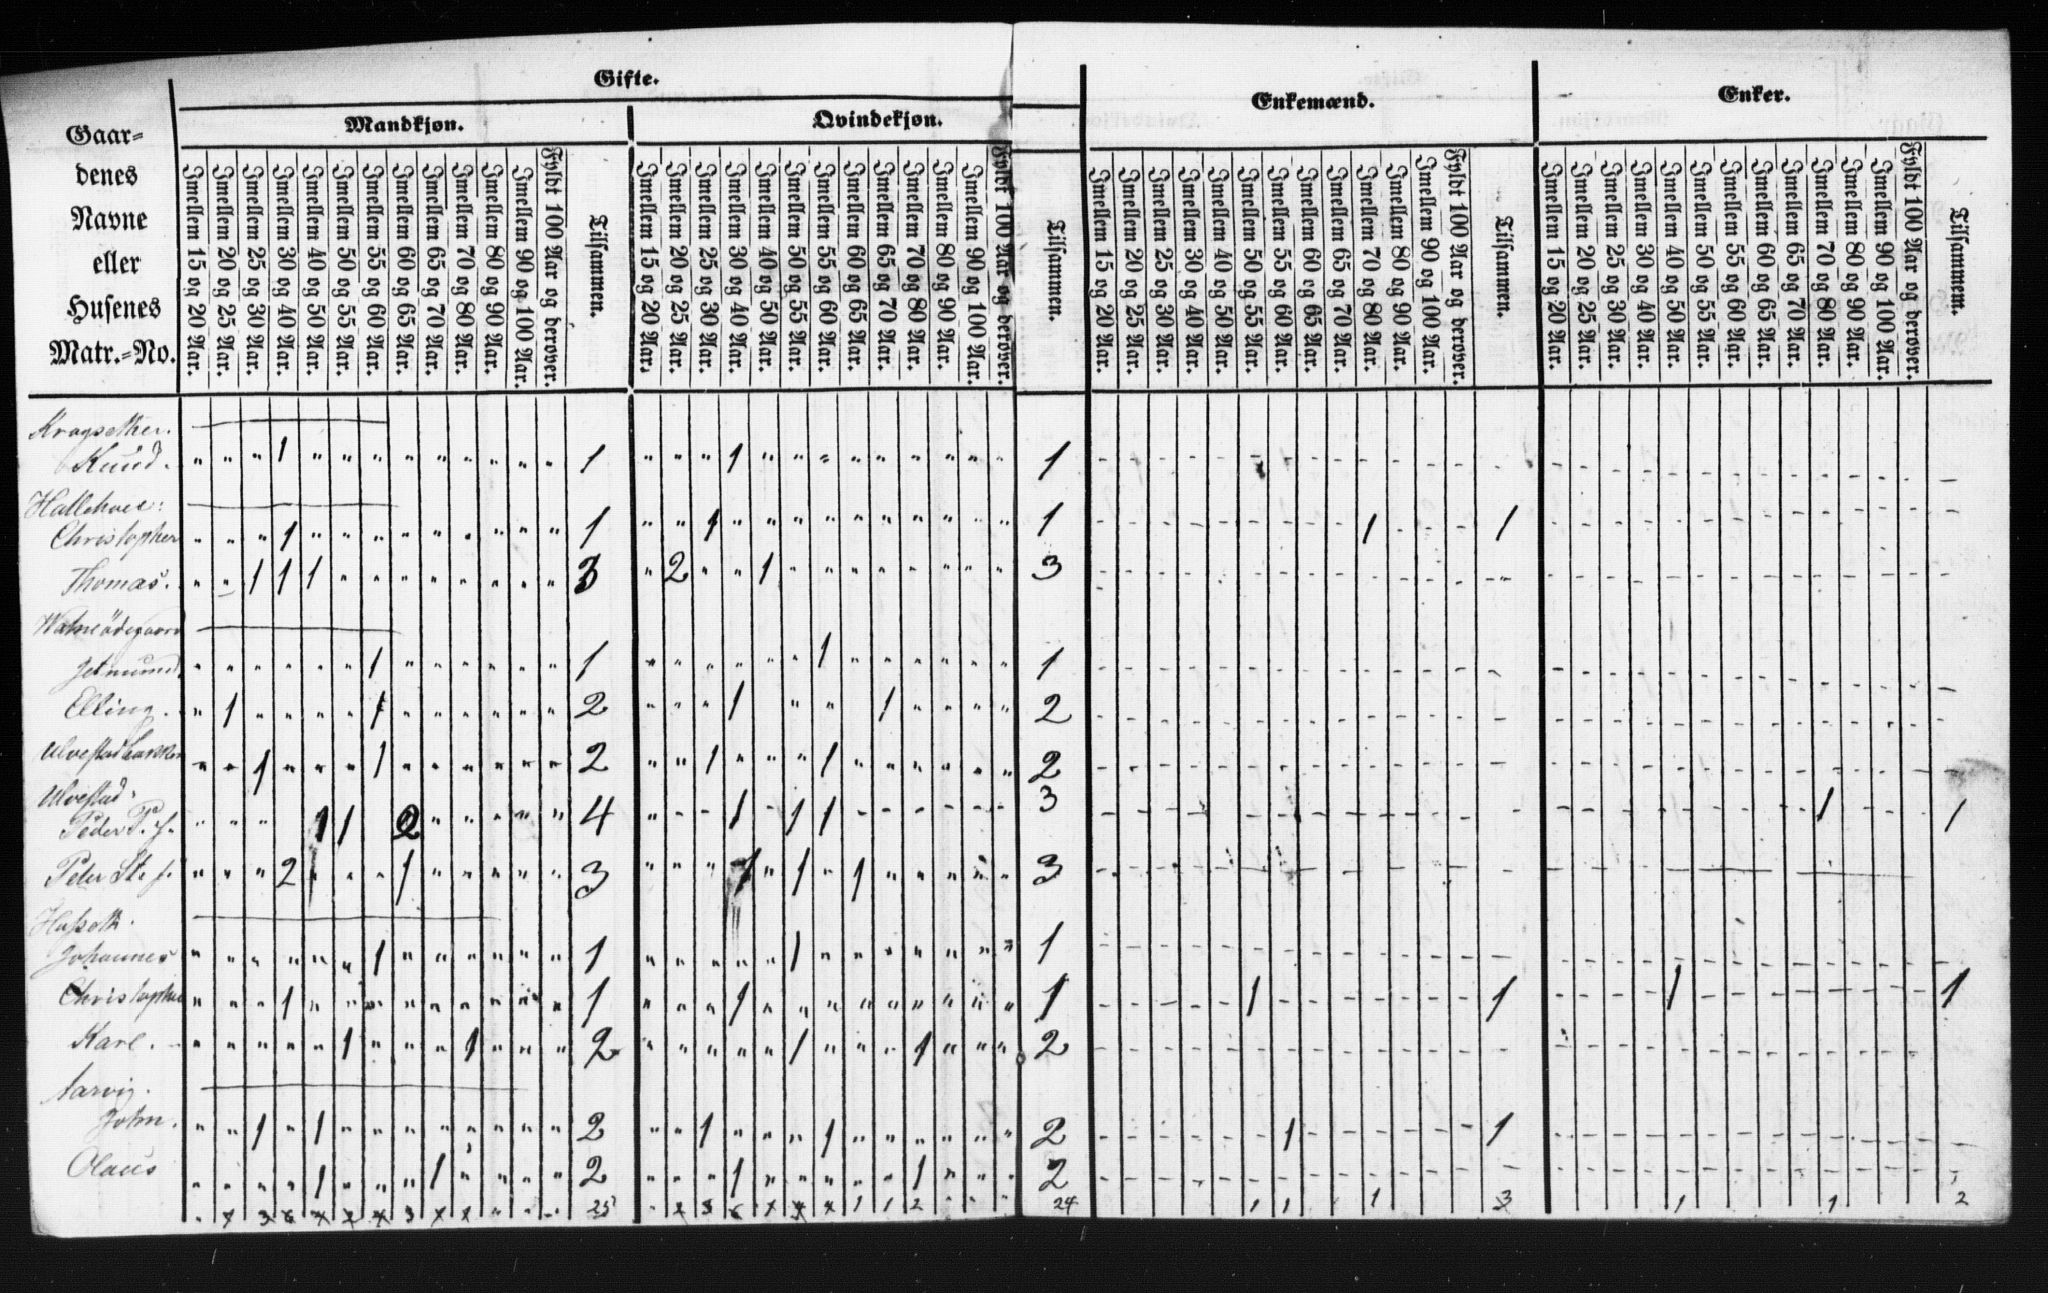 Gifte.
Enkemænd.
Enker.
Mandkjøn.
Qvindekjøn.
Gaar-
denes
Navne
eller
Husenes
Matr.-No.
Imellem 15 og 20 Aar.
Imellem 20 og 25 Aar.
Imellem 25 og 30 Aar.
Imellem 30 og 40 Aar.
Imellem 40 og 50 Aar.
Imellem 50 og 55 Aar.
Imellem 55 og 60 Aar.
Imellem 60 og 65 Aar.
Imellem 65 og 70 Aar.
Imellem 70 og 80 Aar.
Imellem 80 og 90 Aar.
Imellem 90 og 100 Aar.
Fyldt 100 Aar og derover.
Tilsammen.
Imellem 15 og 20 Aar.
Imellem 20 og 25 Aar.
Imellem 25 og 30 Aar.
Imellem 30 og 40 Aar.
Imellem 40 og 50 Aar.
Imellem 50 og 55 Aar.
Imellem 55 og 60 Aar.
Imellem 60 og 65 Aar.
Imellem 65 og 70 Aar.
Imellem 70 og 80 Aar.
Imellem 80 og 90 Aar.
Imellem 90 og 100 Aar.
Fyldt 100 Aar og derover.
Tilsammen.
Imellem 15 og 20 Aar.
Imellem 20 og 25 Aar.
Imellem 25 og 30 Aar.
Imellem 30 og 40 Aar.
Imellem 40 og 50 Aar.
Imellem 50 og 55 Aar.
Imellem 55 og 60 Aar.
Imellem 60 og 65 Aar.
Imellem 65 og 70 Aar.
Imellem 70 og 80 Aar.
Imellem 80 og 90 Aar.
Imellem 90 og 100 Aar.
Fyldt 100 Aar og derover.
Tilsammen.
Imellem 15 og 20 Aar.
Imellem 20 og 25 Aar.
Imellem 25 og 30 Aar.
Imellem 30 og 40 Aar.
Imellem 40 og 50 Aar.
Imellem 50 og 55 Aar.
Imellem 55 og 60 Aar.
Imellem 60 og 65 Aar.
Imellem 65 og 70 Aar.
Imellem 70 og 80 Aar.
Imellem 80 og 90 Aar.
Imellem 90 og 100 Aar.
Fyldt 100 Aar og derover.
Tilsammen.
Kragsether.
Knud. 1 1 1 1
Christopher 1 1 1 1 1 1
Thomas. 1 1 1 3 2 1 3
Jetmund. 1 1 1 1
Elling. 1 1 2 1 1 2
1 1 2 1 1 2
Ulvestad.
Peder P. s. 1 1 2 4 1 1 1 3 1 1
Peter St. s. 2 1 3 1 1 1 3
Johannes 1 1 1 1
1 1 1 1 1 1 1 1
Karl. 1 1 2 1 1 2
Aarvig.
John. 1 1 2 1 1 2 1 1
Olaus 1 1 2 1 1 2
25 1 1 2 24 1 1 1 3 1 1 2